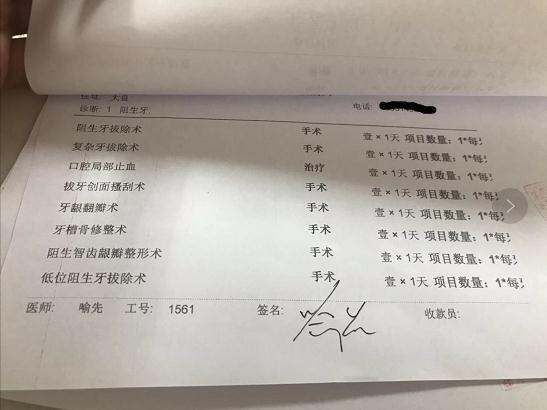 诊断: 1 阻生牙: 电话:
阻生牙拔除术 手术 壹×1天 项目数量: 1*每
复杂牙拔除术 手术 壹×1天 项目数量: 1*每
口腔局部止血 治疗 壹×1天 项目数量: 1*每
拔牙创面搔刮术 手术 壹×1天 项目数量: 1*每
牙龈翻瓣术 手术 壹×1天 项目数量: 1*每
牙槽骨修整术 手术 壹×1天 项目数量: 1*每
阻生智齿龈瓣整形术 手术 壹×1天 项目数量: 1*每
低位阻生牙拔除术 手术 壹×1天 项目数量: 1*每
医师: 喻先 工号: 1561 签名: 收款员: